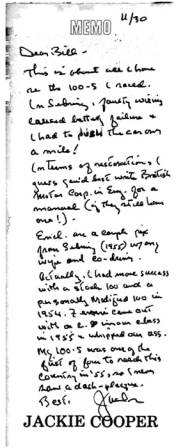 MEMO
11/30
Dear Bill -
This is about all I have
on the 100-S I raced.
In Sebring, faulty wiring
caused battery failure &
I had to push the car over
a mile!
In terms of restoration, I
guess you'd best write British
Motor Corp. in Eng. for a
manual (if they still have
one!).
Encl. are a couple pix
from Sebring (1955) w/ my
wife and co-driver.
Actually, I had more success
with a stock 100 and a
personally modified 100 in
1954. Ferrari came out
with a 2. in our class
in 1955 & whipped our ass.
My 100-S was one of the
first of four to reach this
country in '55, so I now
have a dash-plaque.
Best,
Jackie
JACKIE COOPER